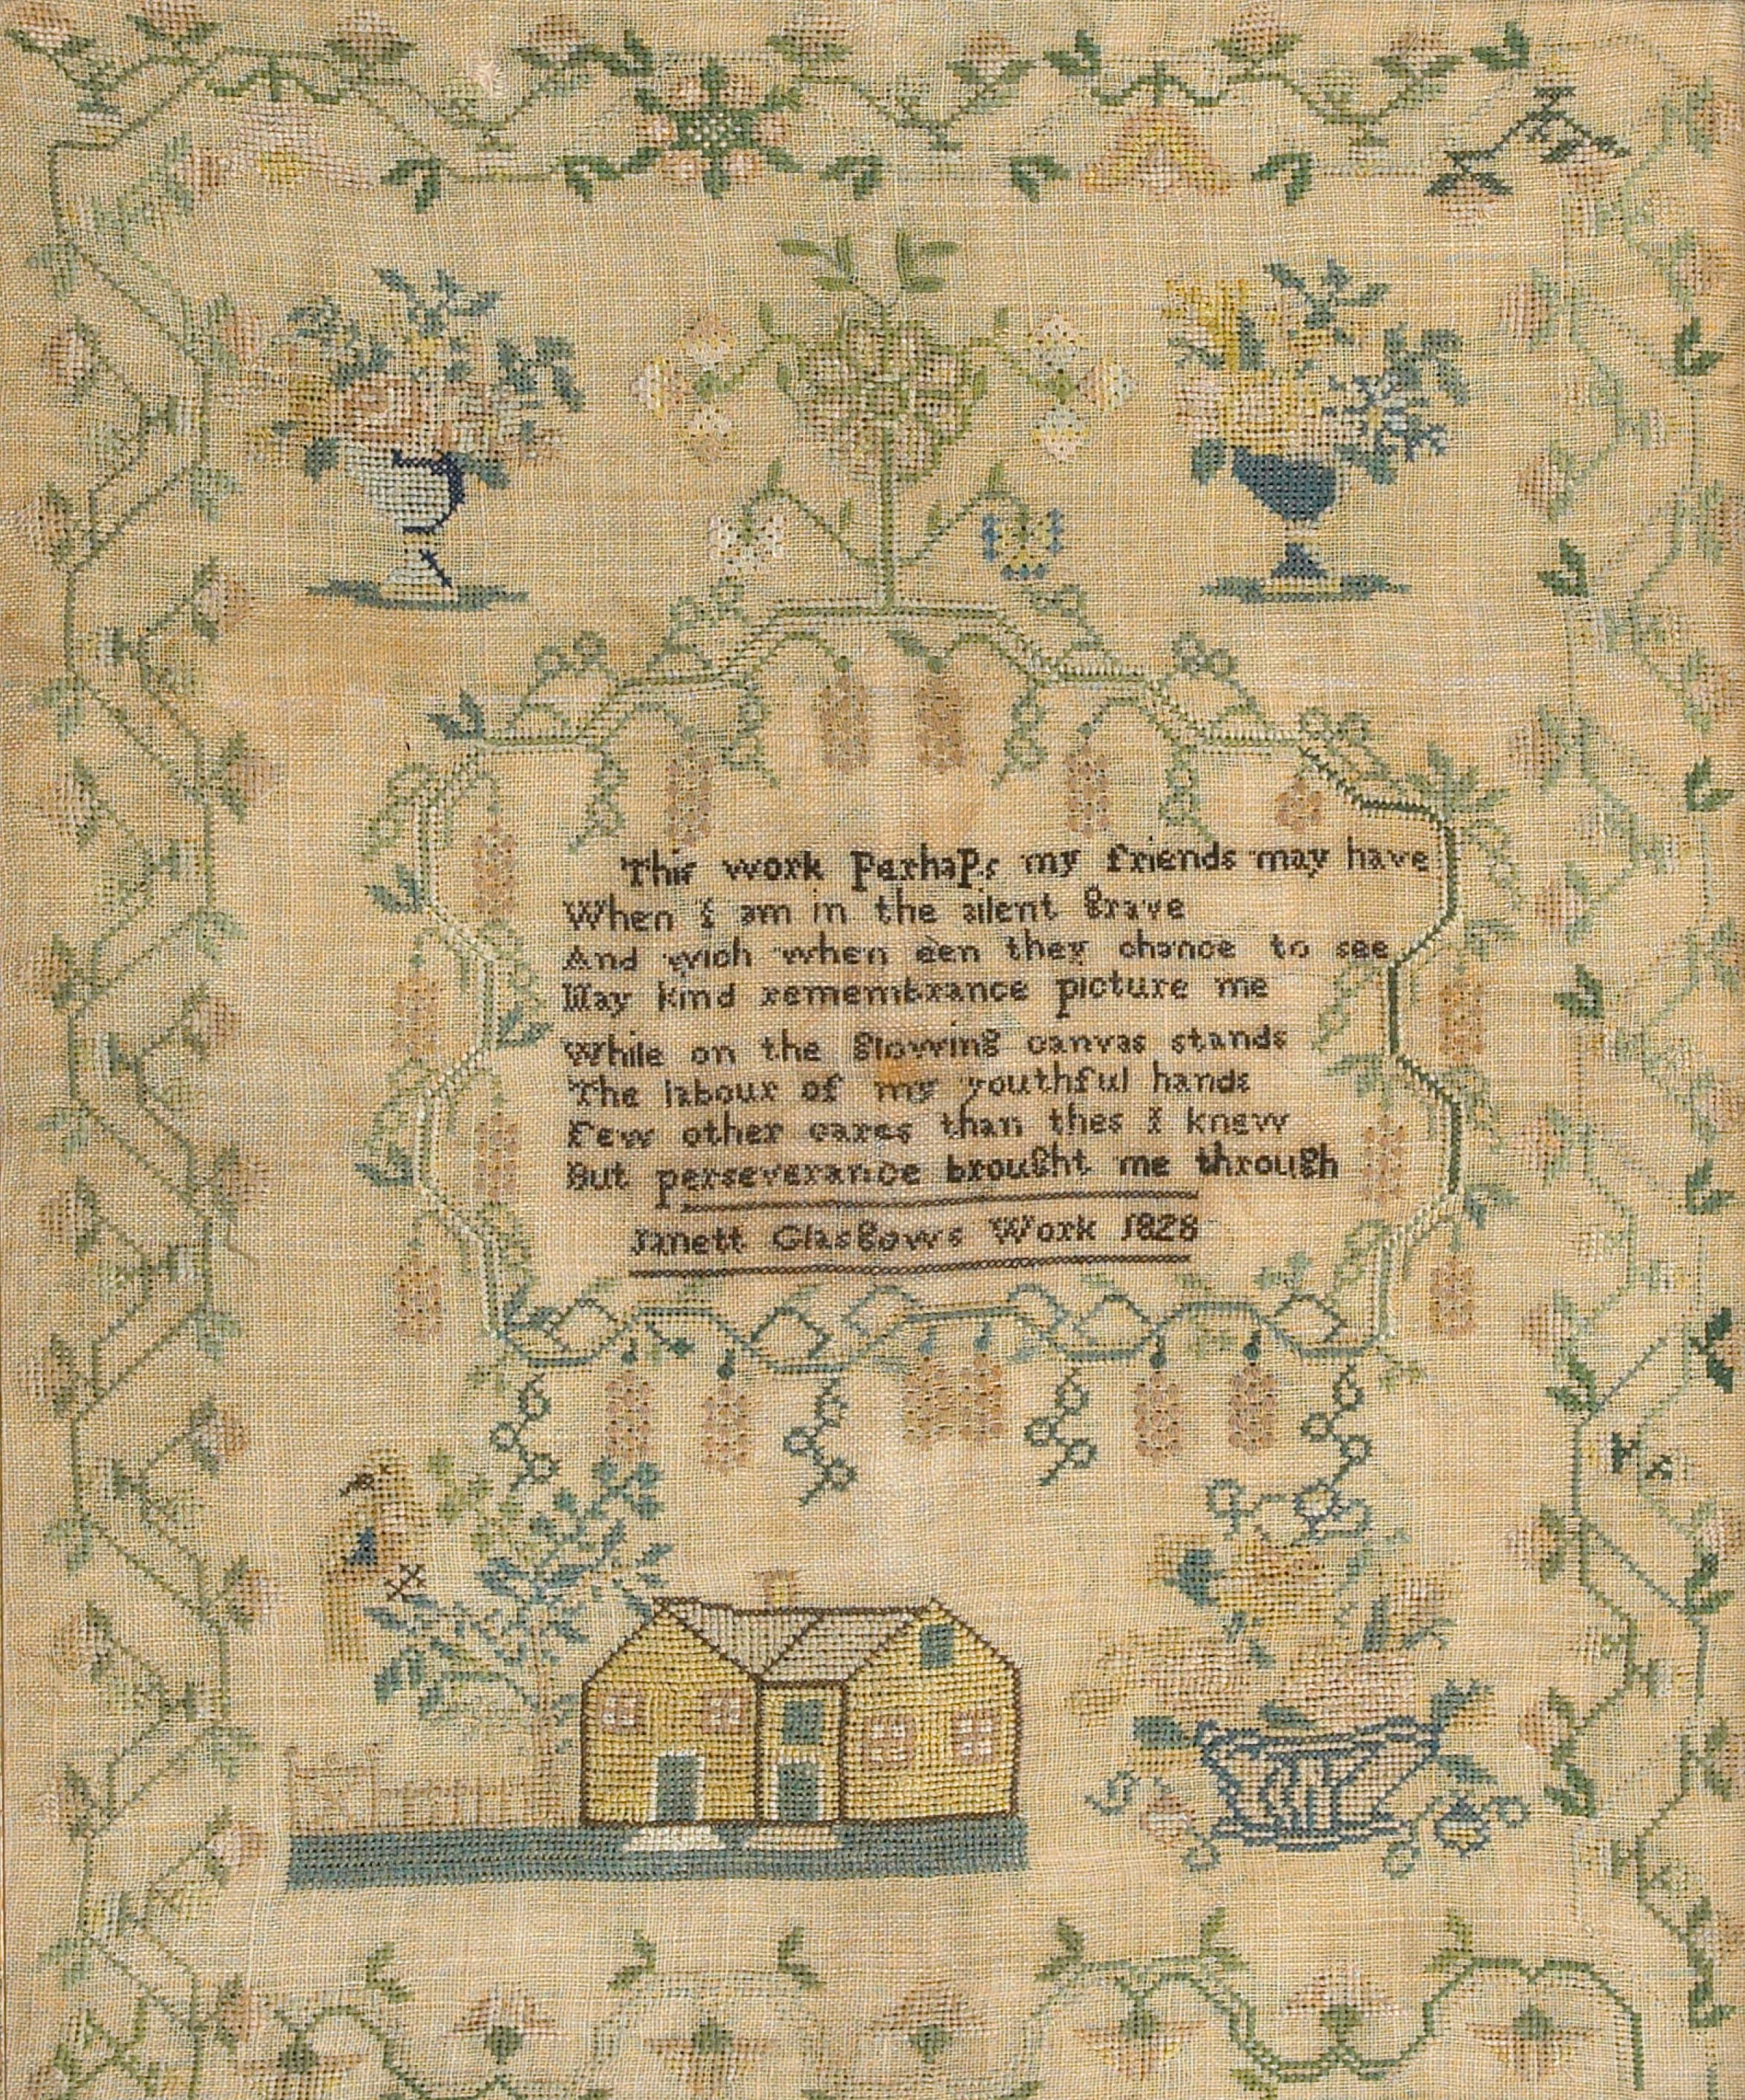 This work Perhaps my friends may have
When I am in the silent grave
And wich when een they chance to see
May kind remembrance picture me
While on the glowing canvas stands
The labour of my youthful hands
Few other cares than thes I knew
But perseverance brought me through
Janett Glasgows Work 1828